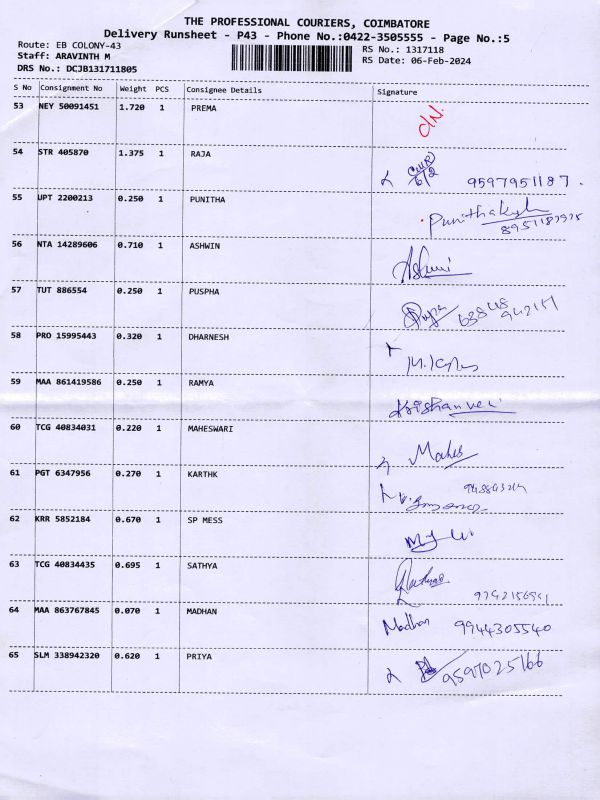 THE PROFESSIONAL COURIERS, COIMBATORE
Delivery Runsheet - P43 - Phone No.:0422-3505555 - Page No.:5
Route: EB COLONY-43 RS No.: 1317118
Staff: ARAVINTH M RS Date: 06-Feb-2024
DRS No.: DCJB131711805
S No Consignment No Weight PCS Consignee Details Signature
53 NEY 50091451 1.720 1 PREMA
54 STR 405870 1.375 1 RAJA 6/2 9597951187.
55 UPT 2200213 0.250 1 PUNITHA
56 NTA 14289606 0.710 1 ASHWIN
57 TUT 886554 0.250 1 PUSPHA
58 PRO 15995443 0.320 1 DHARNESH
59 MAA 861419586 0.250 1 RAMYA Krishanveri
60 TCG 40834031 0.220 1 MAHESWARI Mahes
61 PGT 6347956 0.270 1 KARTHK
62 KRR 5852184 0.670 1 SP MESS
63 TCG 40834435 0.695 1 SATHYA
64 MAA 863767845 0.070 1 MADHAN Madhan 9944305540
65 SLM 338942320 0.620 1 PRIYA 9597025166